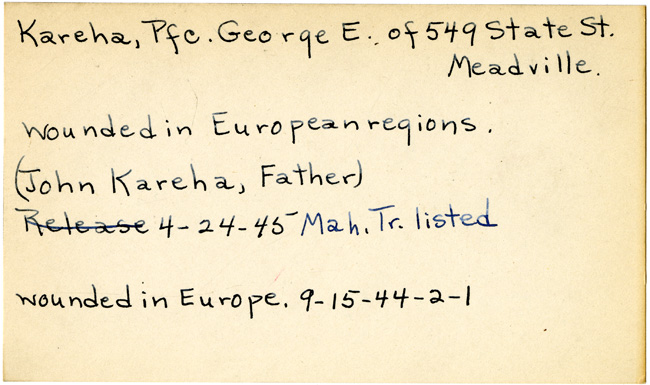 Kareha, Pfc. George E. of 549 State St.
Meadville.
wounded in European regions.
(John Kareha, Father)
Release 4-24-45 Mah. Tr. listed
wounded in Europe. 9-15-44-2-1